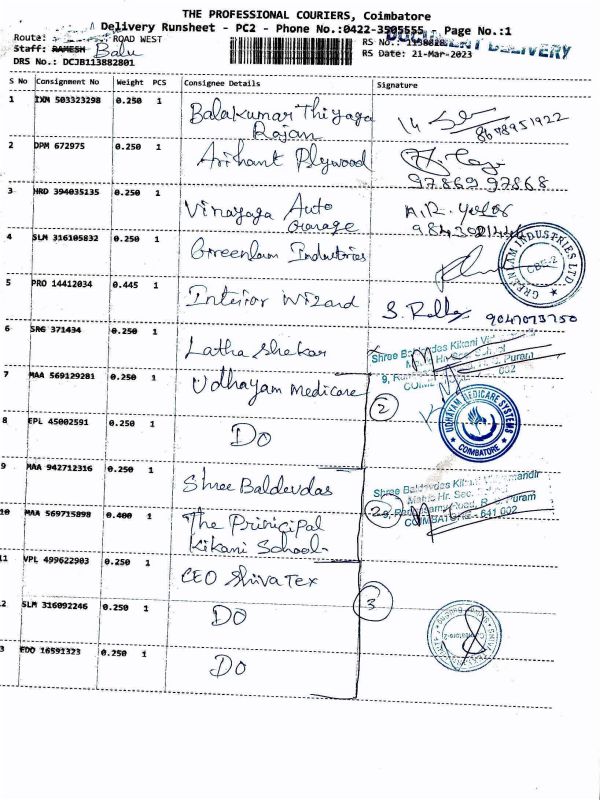 THE PROFESSIONAL COURIERS, Coimbatore
Delivery Runsheet - PC2 - Phone No.:0422-3505555 Page No.:1
DOCUMENT DELIVERY
Route: ROAD WEST
RS No.:
Staff: RAMESH Balu
RS Date: 21-Mar-2023
DRS No.: DCJB113882801
S No Consignment No Weight PCS Consignee Details Signature
1 IXM 503323298 0.250 1 Balakumar Thiyaga
Rajan
8678951922
2 DPM 672975 0.250 1 Arihant Plywood
97869 97868
3 HRD 394035135 0.250 1 Vinayaga Auto
Garage
4 SLM 316105832 0.250 1 Greenlam Industries
GREENLAM INDUSTRIES LTD
CBE-2
5 PRO 14412034 0.445 1 Interior Wizard
9047073750
6 SRG 371434 0.250 1 Latha Shekar
Shree Baldevdas Kikani
Puram
7 MAA 569129281 0.250 1 Udhayam Medicare
2
UDHAYAM MEDICARE SYSTEMS
COIMBATORE
8 EPL 45002591 0.250 1 Do
9 MAA 942712316 0.250 1 Shree Baldevdas
Shree Baldevdas
Matric Hr. Sec.
Puram
COIMBATORE - 641 002
10 MAA 569715898 0.400 1 The Prinicipal
Kikani School.
2
11 VPL 499622903 0.250 1 CEO Shiva Tex
3
2 SLM 316092246 0.250 1 Do
3 EDO 16591323 0.250 1 Do